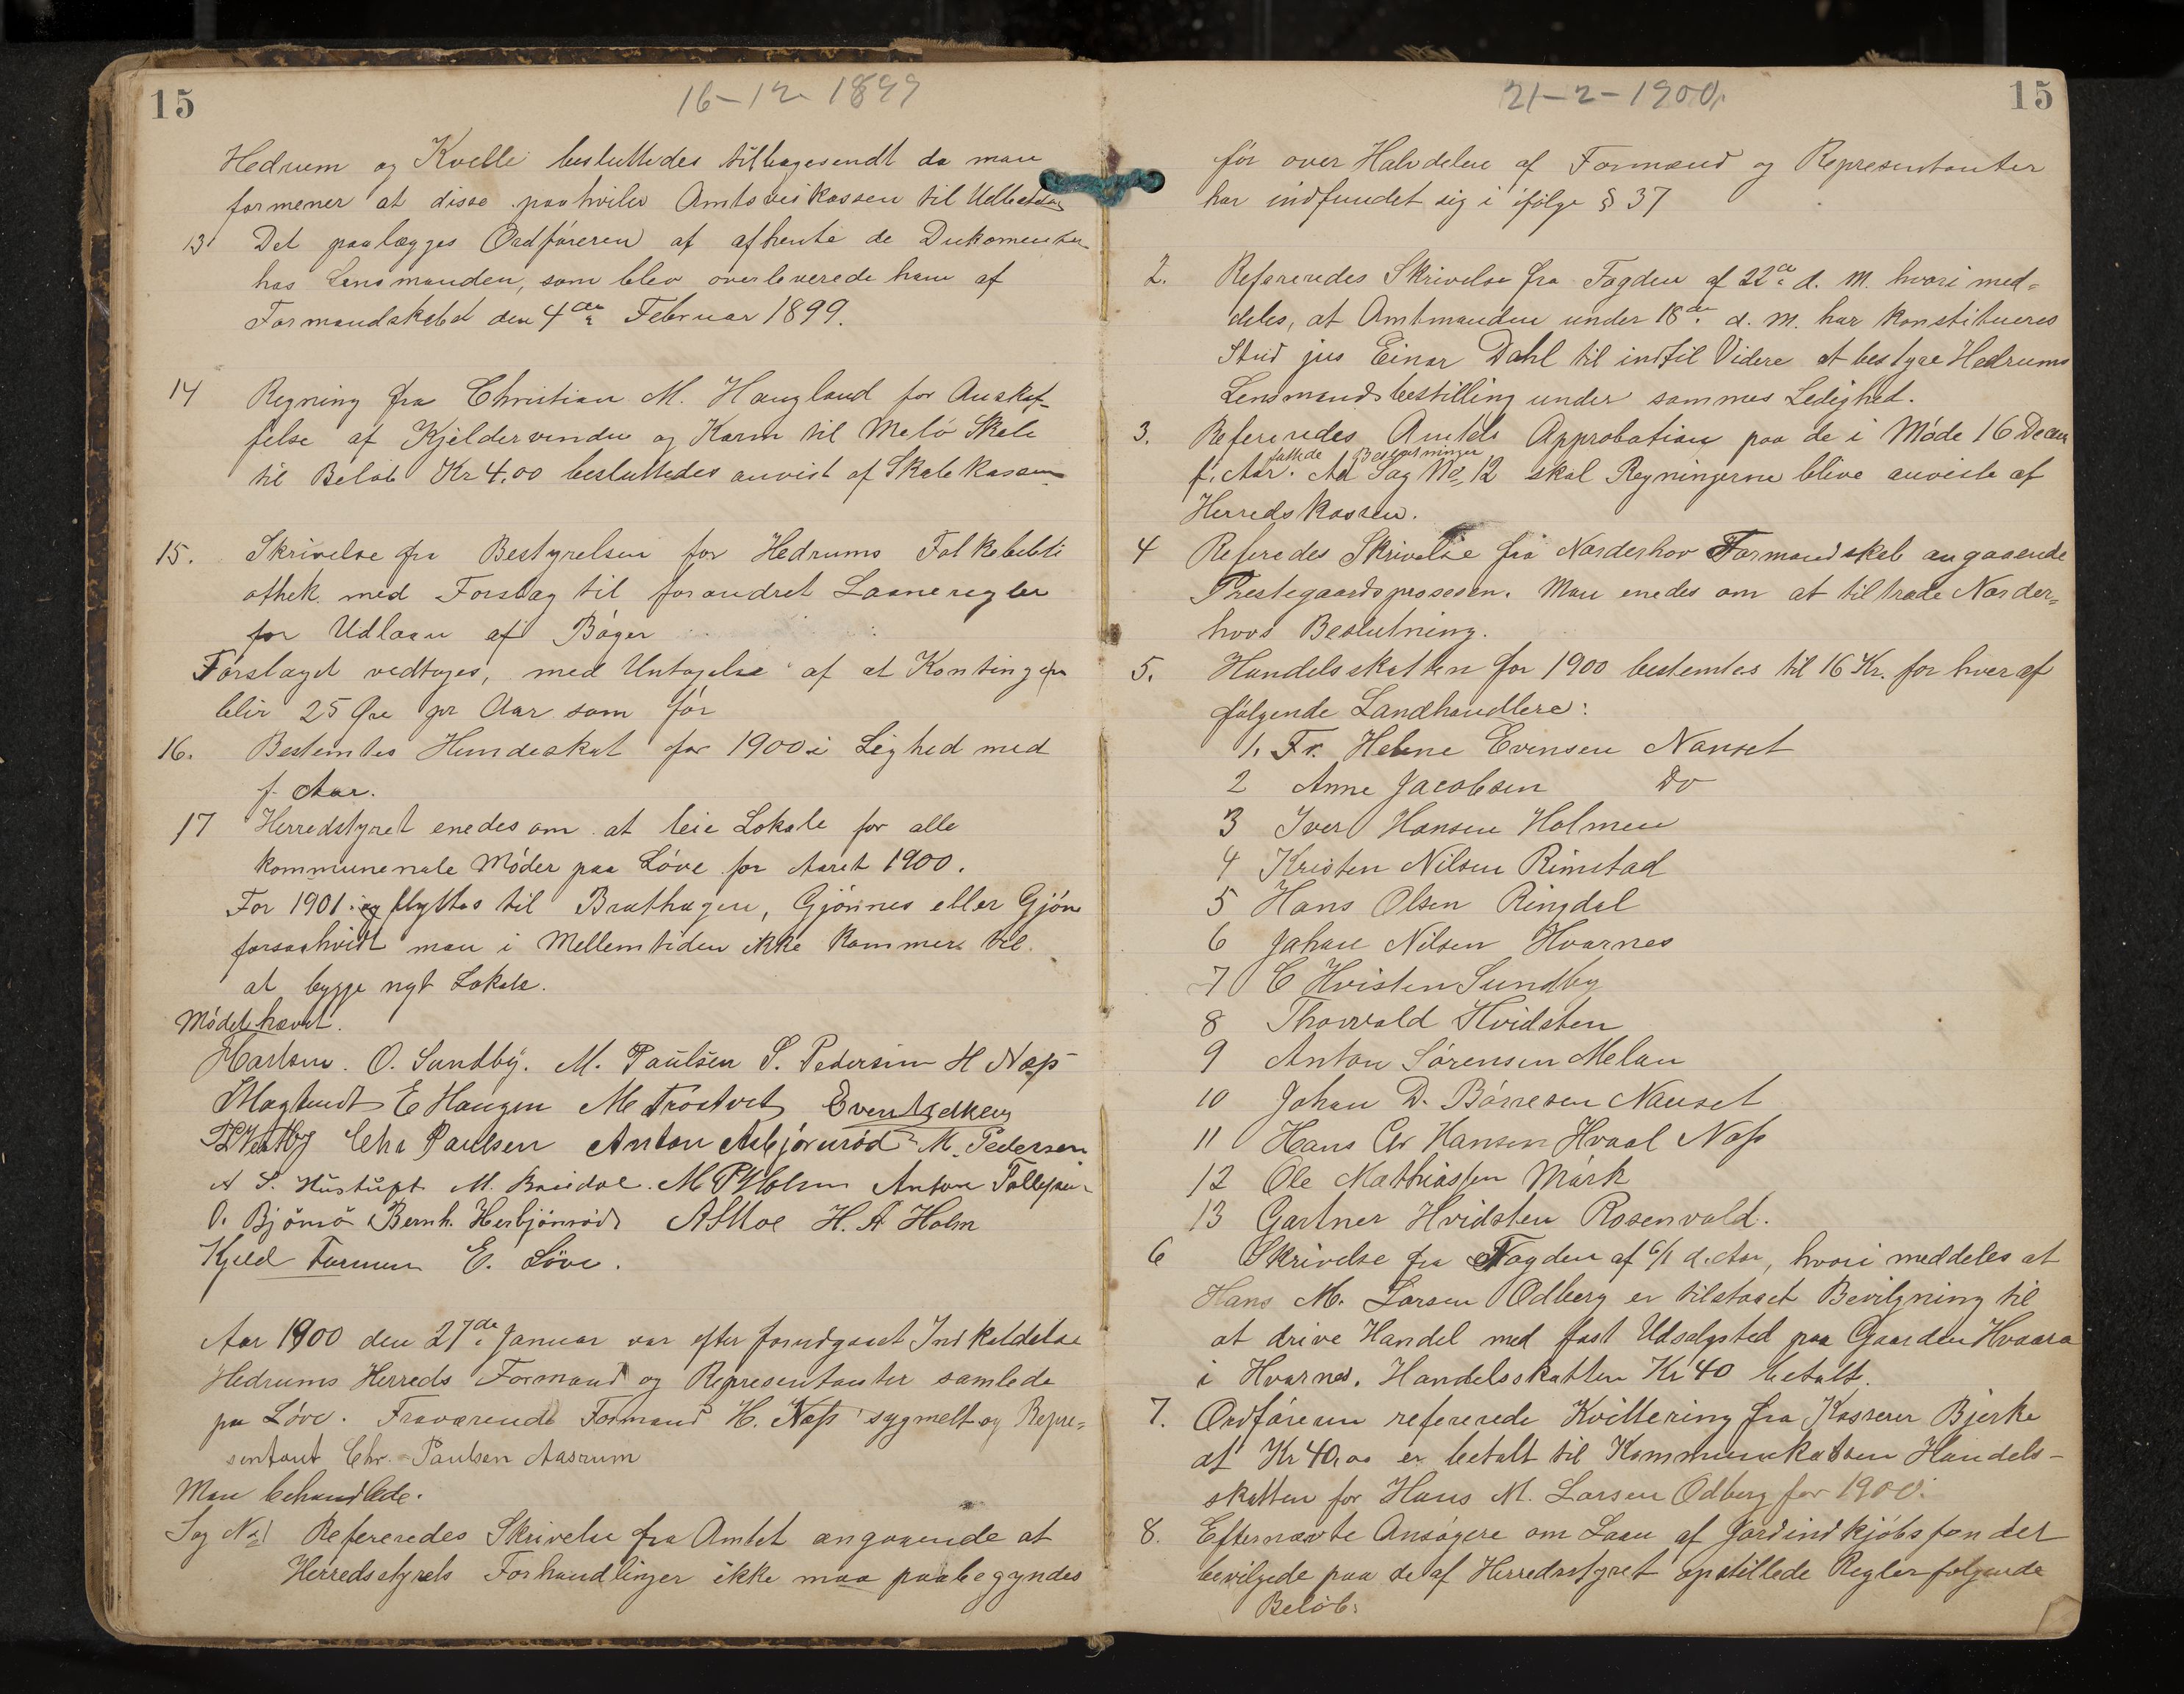 15
16-12 1899
Hedrum og Kvelle besluttedes tilbagesendt da man
formener at disse paahviler Amtsveikassen til Udbetaling
13 Det paalægges Ordføreren at afhente de Dukomenter
hos Lensmanden, som blev overleverede ham af
Formandskabet den 4de Februar 1899.
14 Regning fra Christian M. Haugland for Anskaf-
felse af Kjeldervindu og Karm til Melø Skole
til Beløb Kr 4.00 besluttedes anvist af Skolekassen
15. Skrivelse fra Bestyrelsen for Hedrums Folkebibli
othek med Forslag til forandret Laaneregler
for Udlaan af Bøger
Forslaget vedtoges, med Untagelse af at Kontingen
blir 25 Øre pr Aar som før
16. Bestemtes Hundeskat for 1900 i Lighed med
f. Aar.
17 Herredstyret enedes om at leie Lokale for alle
kommunenale Møder paa Løve for Aaret 1900.
For 1901 flyttes til Brathagen, Gjønnes eller Gjøne
forsaahvidt man i Mellemtiden ikke kommer til
at bygge nyt Lokale.
Mødet hævet.
Harlsen. O. Sundby. M. Paulsen S. Pedersen H Næss
E Haugen M Trostvet Event Sedkeng
Chr Paulsen Anton Asbjørnrød M. Pedersen
A S. Hustupt M. Breidal. M P Holm Anton Tollefsen
O. Bjørnø Bernh. Herbjønrød A S Moe H. A Holm
Kjeld Formen E. Löve.
Aar 1900 den 27de Januar var efter forudgaaet Indkaldelse
Hedrums Herreds Formænd og Representanter samlede
pa Løve. Fraværende Formand H. Næss sygmeldt og Repre=
sentant Chr. Paulsen Aasrum
Man behandlede.
Sag No 1 Refereredes Skrivelse fra Amtet angaaende at
Herredsstyrets Forhandlinger ikke maa paabegyndes
21-2-1900.
15
før over Halvdelen af Formænd og Representanter
har indfundet sig i ifølge § 37
2. Refereredes Skrivelse fra Fogden af 22de d. M. hvori med=
deles, at Amtmanden under 18de d. M. har konstitueres
Stud jus Einar Dahl til indtil Videre at bestyre Hedrums
Lensmandsbestilling under sammes Ledighed.
3. Refereredes Amtets Approbation paa de i Møde 16 Decem
fattede Beslutninger
f. Aar. Ad Sag No 12 skal Regningerne blive anviste af
Herredskassen.
4 Referedes Skrivelse fra Norderhov Formandskab angaaende
Prestegaardsprosesen. Man enedes om at tiltræde Norder=
hovs Beslutning.
5. Handelsskatten for 1900 bestemtes til 16 Kr. for hver af
følgende Landhandlere:
1. Fr. Helene Evensen Nanset
2 Anne Jacobsen Do
3 Iver Hansen Holmen
4 Kristen Nilsen Rimstad
5 Hans Olsen Ringdal
6 Johan Nilsen Hvarnes
7 C Hvisten Sundby
8 Thorvald Hvidsten
9 Anton Sørensen Melau
10 Johan D. Børresen Nanset
11 Hans Chr Hansen Hvaal Næss
12 Ole Mathiassen Mørk
13 Gartner Hvidsten Rosenvold.
6 Skrivelse fra Fogden af 6/1 d. Aar, hvori meddeles at
Hans M. Larsen Odberg er tilstaaet Bevilgning til
at drive Handel med fast Udsalgsted paa Gaarden Hvaara
i Hvarnes. Handelsskatten Kr 40 betalt.
7. Ordføreren refererede Kvittering fra Kasserer Bjerke
at Kr 40.00 er betalt til Kommunekassen Handels-
skatten for Hans M. Larsen Odberg for 1900.
8. Efternævnte Ansøgere om Laan af Jordindkjøbsfondet
bevilgede paa de af Herredsstyret opstillede Regler følgende
Beløb: